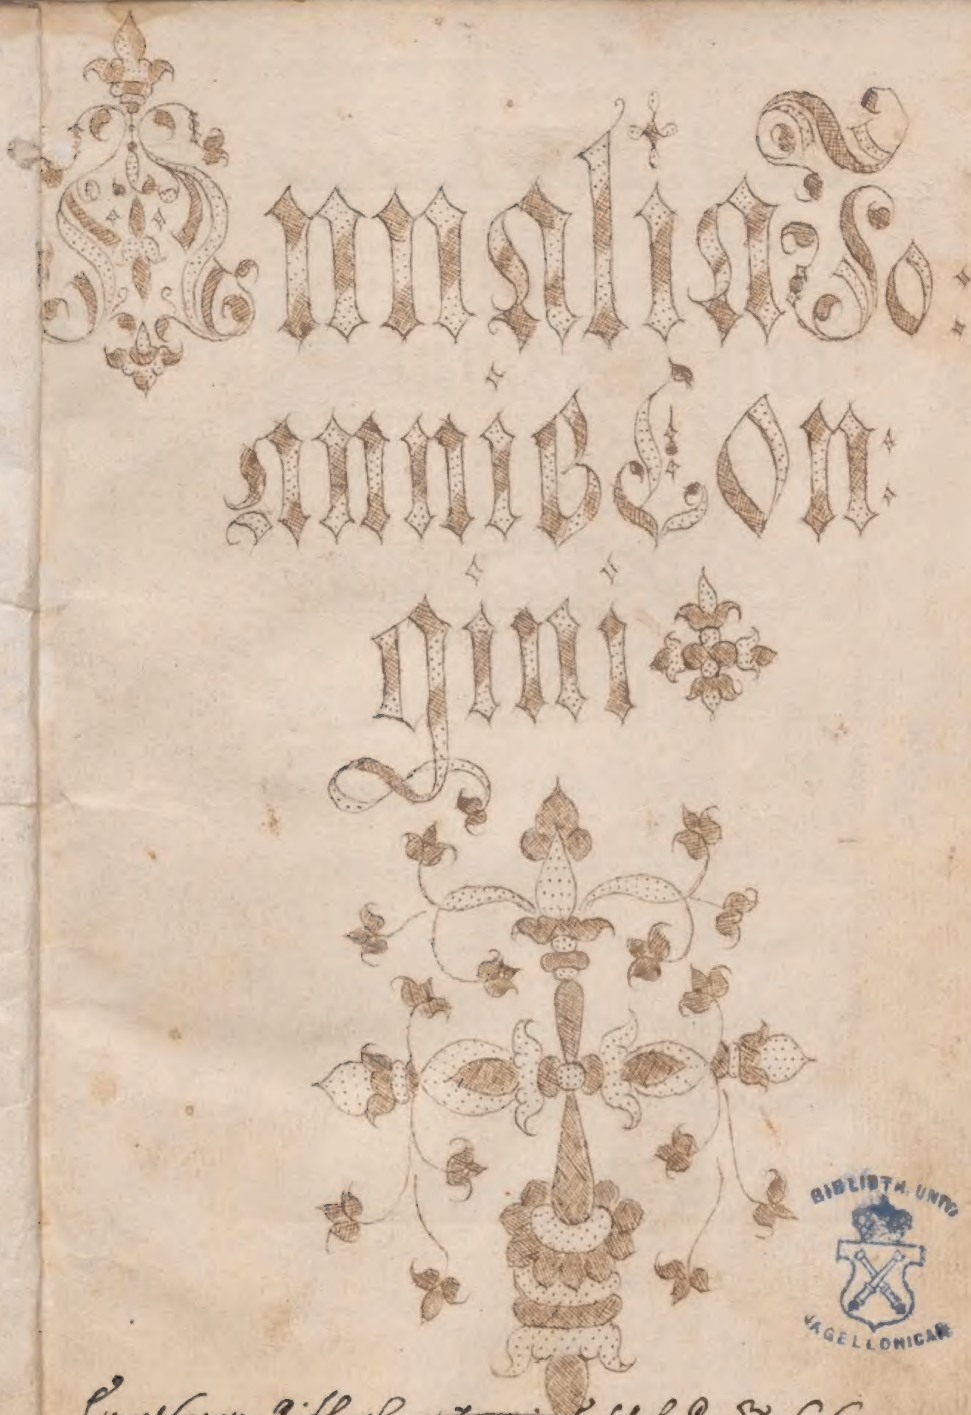 Annalia Jo:
annis Lon:
gini
BIBLIOTH. UNIV.
JAGELLONICAE